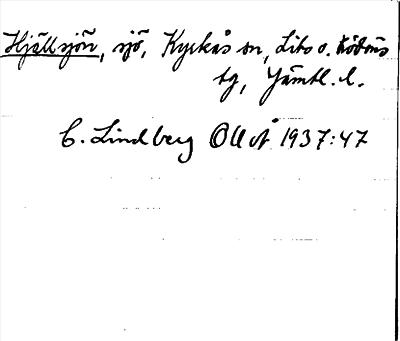 Hjällsjön, sjö, Kyrkås sn, Lits o. Rödöns
tg, Jämtl. l.
C. Lindberg OUoÅ 1937:47